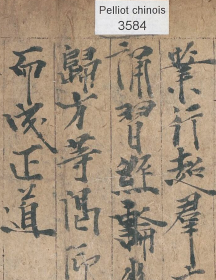 Pelliot chinois
3584
業行超羣
誦習經論
歸方等
而成正道